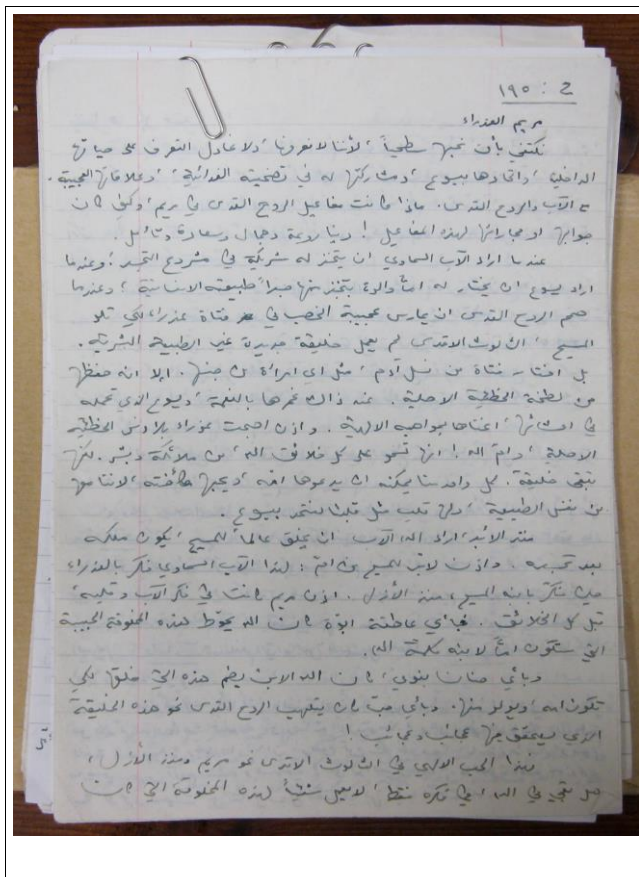 ح : ١٩٥
مريم العذراء
نكتفي بأن نحبها سطحياً، لأننا لا نعرفها، ولا نحاول التعرف على حياتها
الداخلية، واتحادها بيسوع، ومشاركتها له في تضحيته الفدائية، وعلاقاتها العجيبة
مع الآب والروح القدس. ماذا كانت مفاعيل الروح القدس في مريم، وكيف كان
جوابها او مجاراتها لهذه المفاعيل! دنيا روعة وجمال وسعادة وتأمل.
عندما اراد الآب السماوي ان يتخذ له شريكة في مشروع التجسد، وعندما
اراد يسوع ان يختار له امّاً والدة يتخذ منها جسداً طبيعته الانسانية، وعندما
صمم الروح القدس ان يمارس عجيبة الخصب في فتاة عذراء لكي تلد
المسيح، الثالوث الاقدس لم يعمل خليقة جديدة غير الطبيعة البشرية.
بل اختار فتاة من نسل آدم، مثل اي امرأة من جنسها. إلا انه حفظها
من لطخة الخطيئة الاصلية. عند ذاك غمرها بالنعمة، ويسوع الذي تحمله
في احشائها، اغناها بمواهبه الالهية. واذن اصبحت عذراء بلا دنس الخطيئة
الاصلية، وامّ الله! انها تسمو على كل خلائق الله، من ملائكة وبشر. لكنها
تبقى خليقة. كل واحد منا يمكنه ان يدعوها اخته، ويحبها كأخته، لاننا معها
من نفس الطبيعة، ولها قلب مثل قلبنا تتحد بيسوع.
منذ الأبد، اراد الله الآب ان يخلق عالماً للمسيح، يكون ملكه
بعد تجسده. واذن لابد للمسيح من امّ: لهذا الآب السماوي فكر بالعذراء
حين فكر بابنه المسيح، منذ الأزل. اذن مريم كانت في فكر الآب وقلبه،
قبل كل الخلائق. فبأي عاطفة ابوّة كان الله يحوّط هذه المخلوقة الحبيبة
التي ستكون امّاً لابنه كلمة الله.
وبأي حنان بنوي، كان الله الابن يضم هذه التي خلق لكي
تكون امه، ويولد منها. وبأي حبّ كان يتلهب الروح القدس نحو هذه الخليقة
الذي سيحقق منها عجائب وعجائب!
فهذا الحب الالهي في الثالوث الاقدس نحو مريم ومنذ الأزل،
هل بقي في الله، في فكره فقط، لا يعمل شيئاً لهذه المخلوقة التي كان